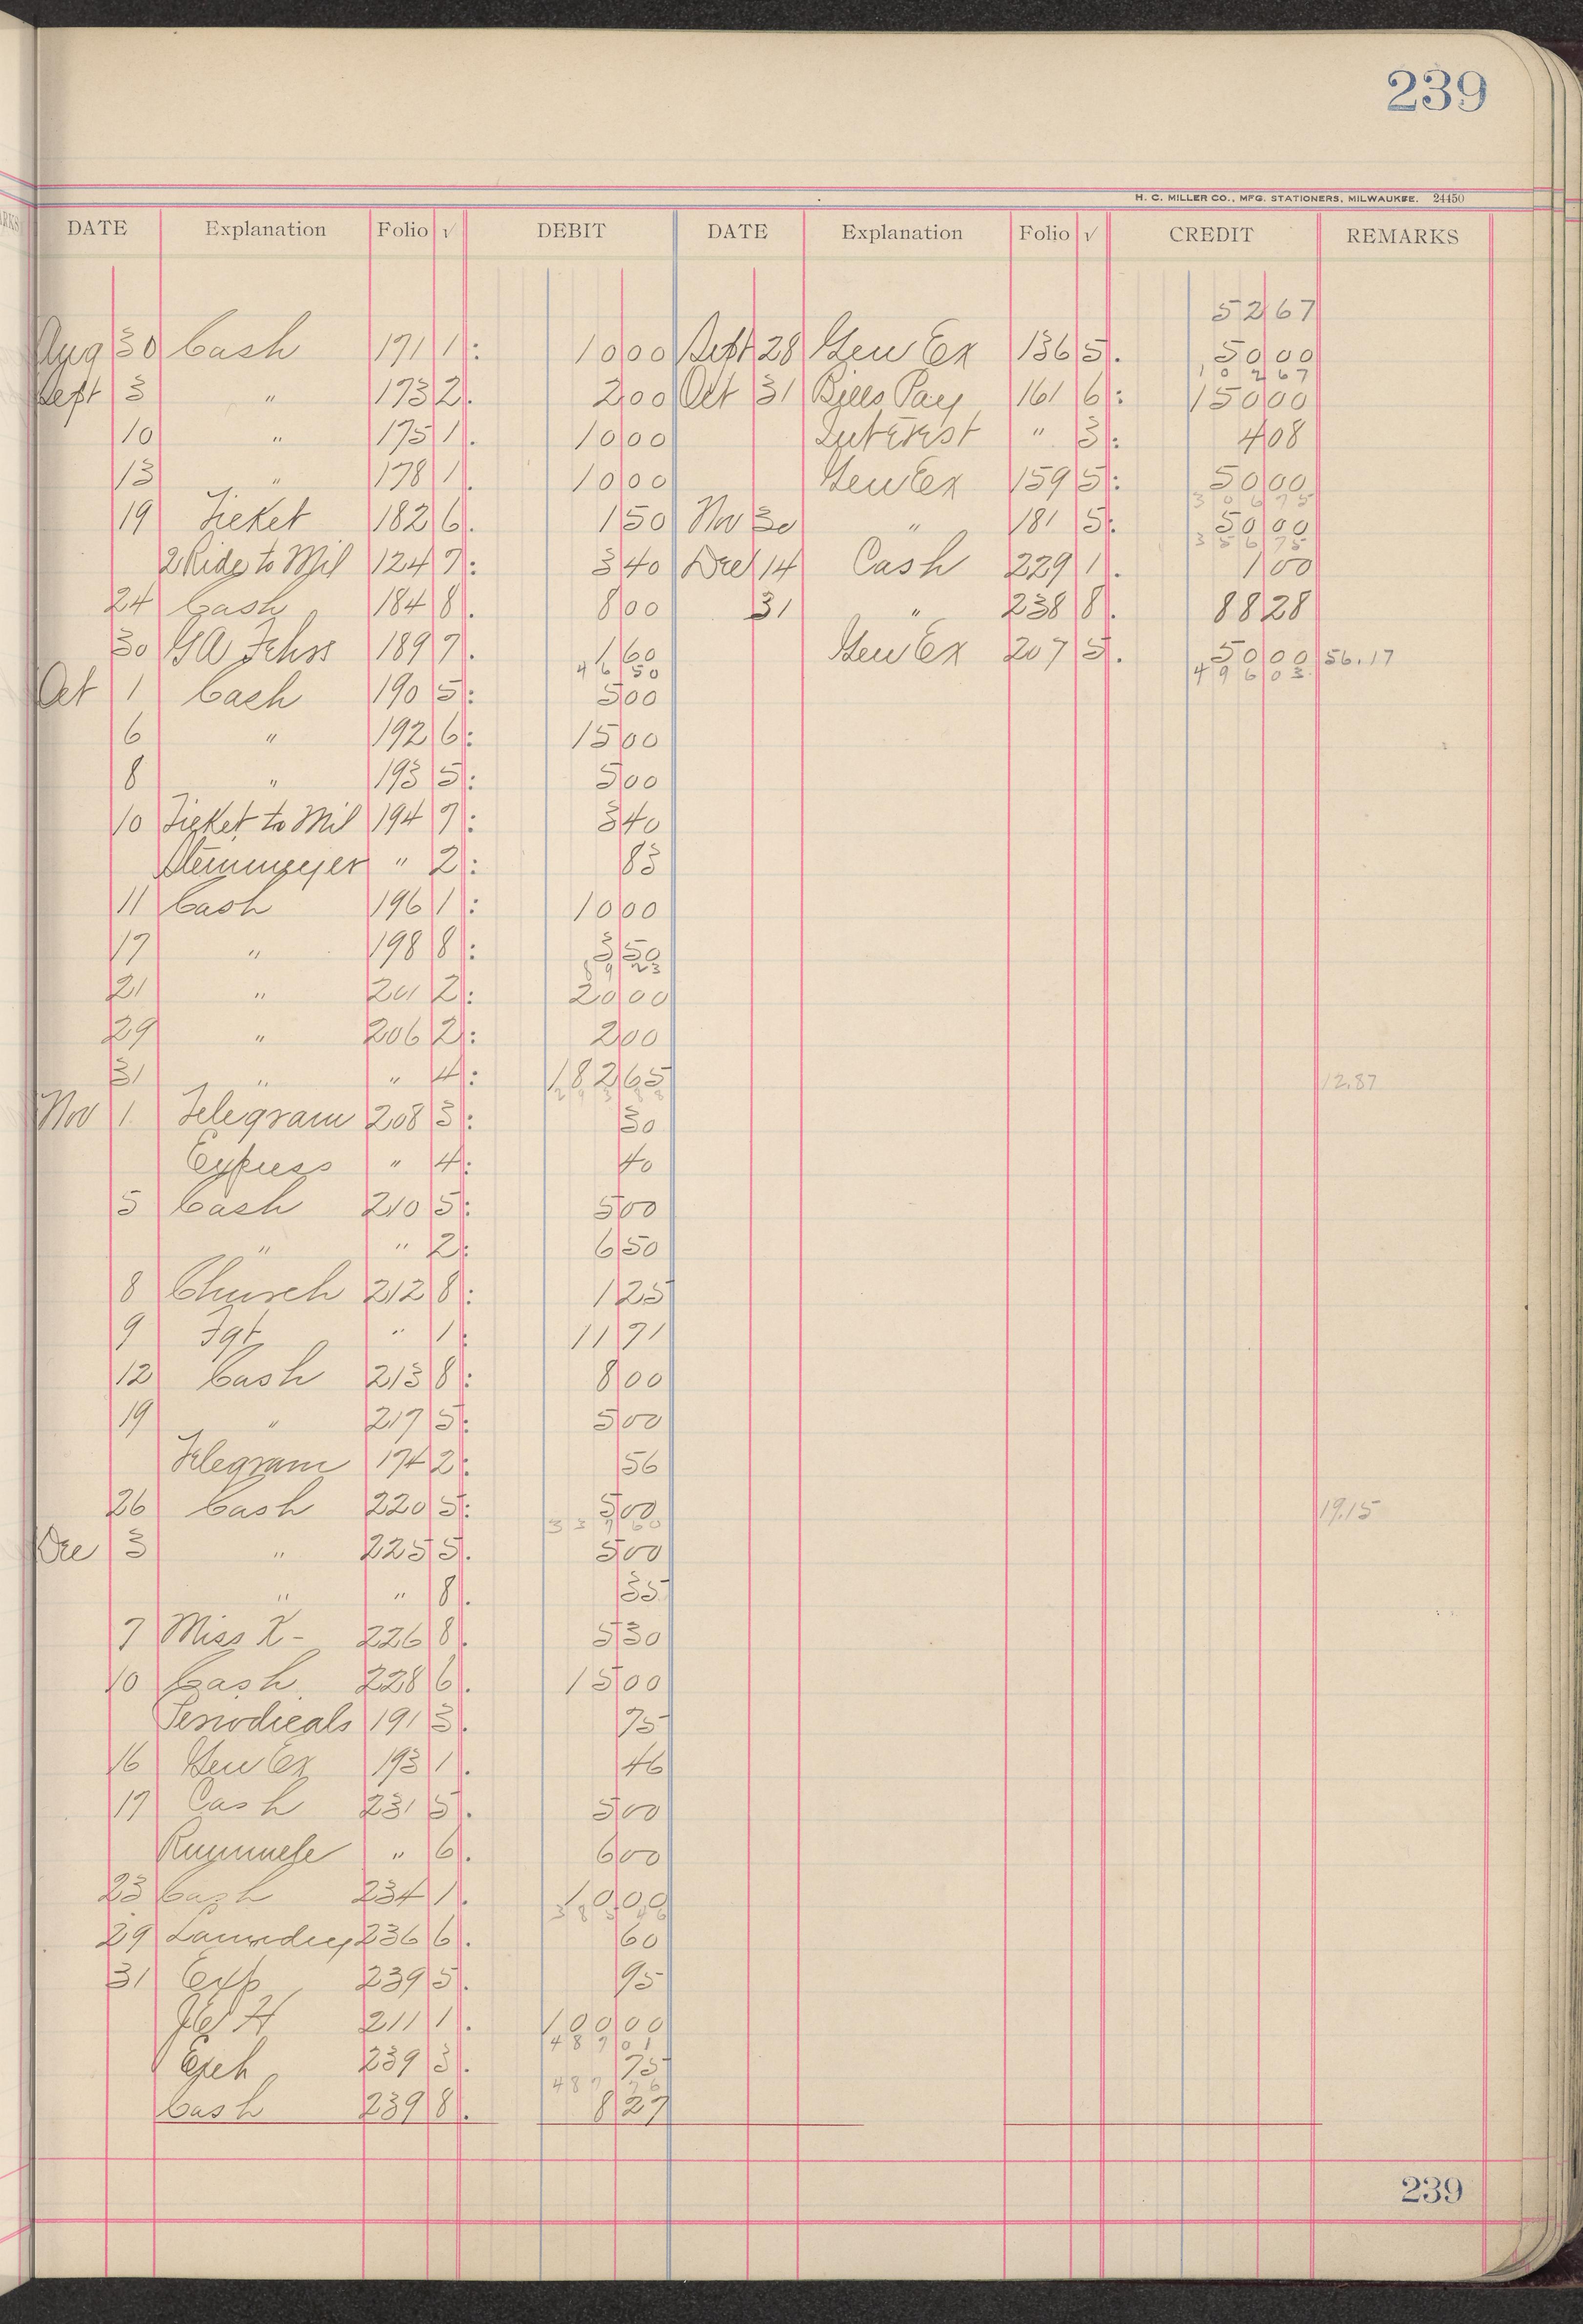 239
H. C. MILLER CO., MFG. STATIONERS, MILWAUKEE. 24450
DATE Explanation Folio √ DEBIT DATE Explanation Folio √ CREDIT REMARKS
52 67
Aug 30 Cash 171 1 10 00 Sept 28 Gen Ex 136 5 50 00
102 67
Sept 3 " 173 2 2 00 Oct 31 Bills Pay 161 6 150 00
10 " 175 1 10 00 Interest " 3 4 08
13 " 178 1 10 00 Gen Ex 159 5 50 00
306 75
19 Ticket 182 6 1 50 Nov 30 " 181 5 50 00
356 75
2 Rides to Mil 124 7 3 40 Dec 14 Cash 229 1 1 00
24 Cash 184 8 8 00 31 " 238 8 88 28
30 189 7 1 60 Gen Ex 207 5 50 00 56.17
46 50 496 03
Oct 1 Cash 190 5 5 00
6 " 192 6 15 00
8 " 193 5 5 00
10 Ticket to Mil 194 7 3 40
Steinmeyer " 2 83
11 Cash 196 1 10 00
17 " 198 8 3 50
89 23
21 " 201 2 20 00
29 " 206 2 2 00
31 " " 4 182 65 12.87
Nov 1 Telegram 208 3 30
Express " 4 40
5 Cash 210 5 5 00
" " 2 6 50
8 Church 212 8 1 25
9 Fgt " 1 11 71
12 Cash 213 8 8 00
19 " 217 5 5 00
Telegram 174 2 56
26 Cash 220 5 5 00 19.15
Dec 3 " 225 5 5 00
" " 8 35
7 Miss X- 226 8 5 30
10 Cash 228 6 15 00
Periodicals 191 3 75
16 Gen Ex 193 1 46
17 Cash 231 5 5 00
" 6 6 00
23 Cash 234 1 10 00
29 Laundry 236 6 60
31 Exp 239 5 95
211 1 100 00
487 01
Exch 239 3 75
487 76
Cash 239 8 8 27
239